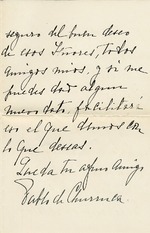 seguro del buen deseo
de esos Señores, todos
amigos mios. y si me
puedes dar algun
nuevo dato. facilitari
as el que demos con
lo que deseas.
Queda tu afmo amigo
Pablo de Churruca